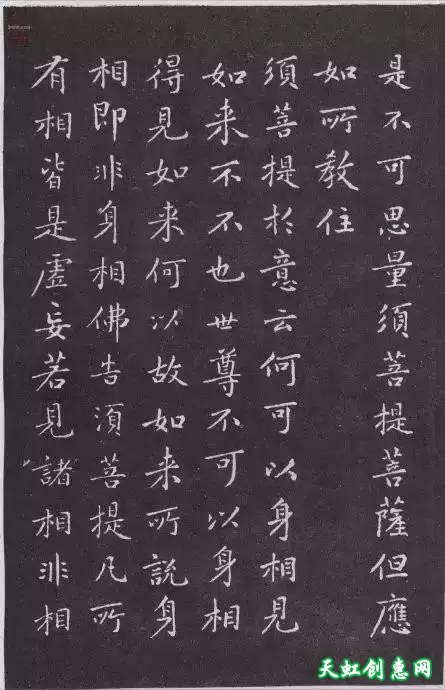 是不可思量須菩提菩薩但應
如所教住
須菩提於意云何可以身相見
如来不不也世尊不可以身相
得見如来何以故如来所説身
相即非身相佛告須菩提凡所
有相皆是虛妄若見諸相非相
天虹创惠网